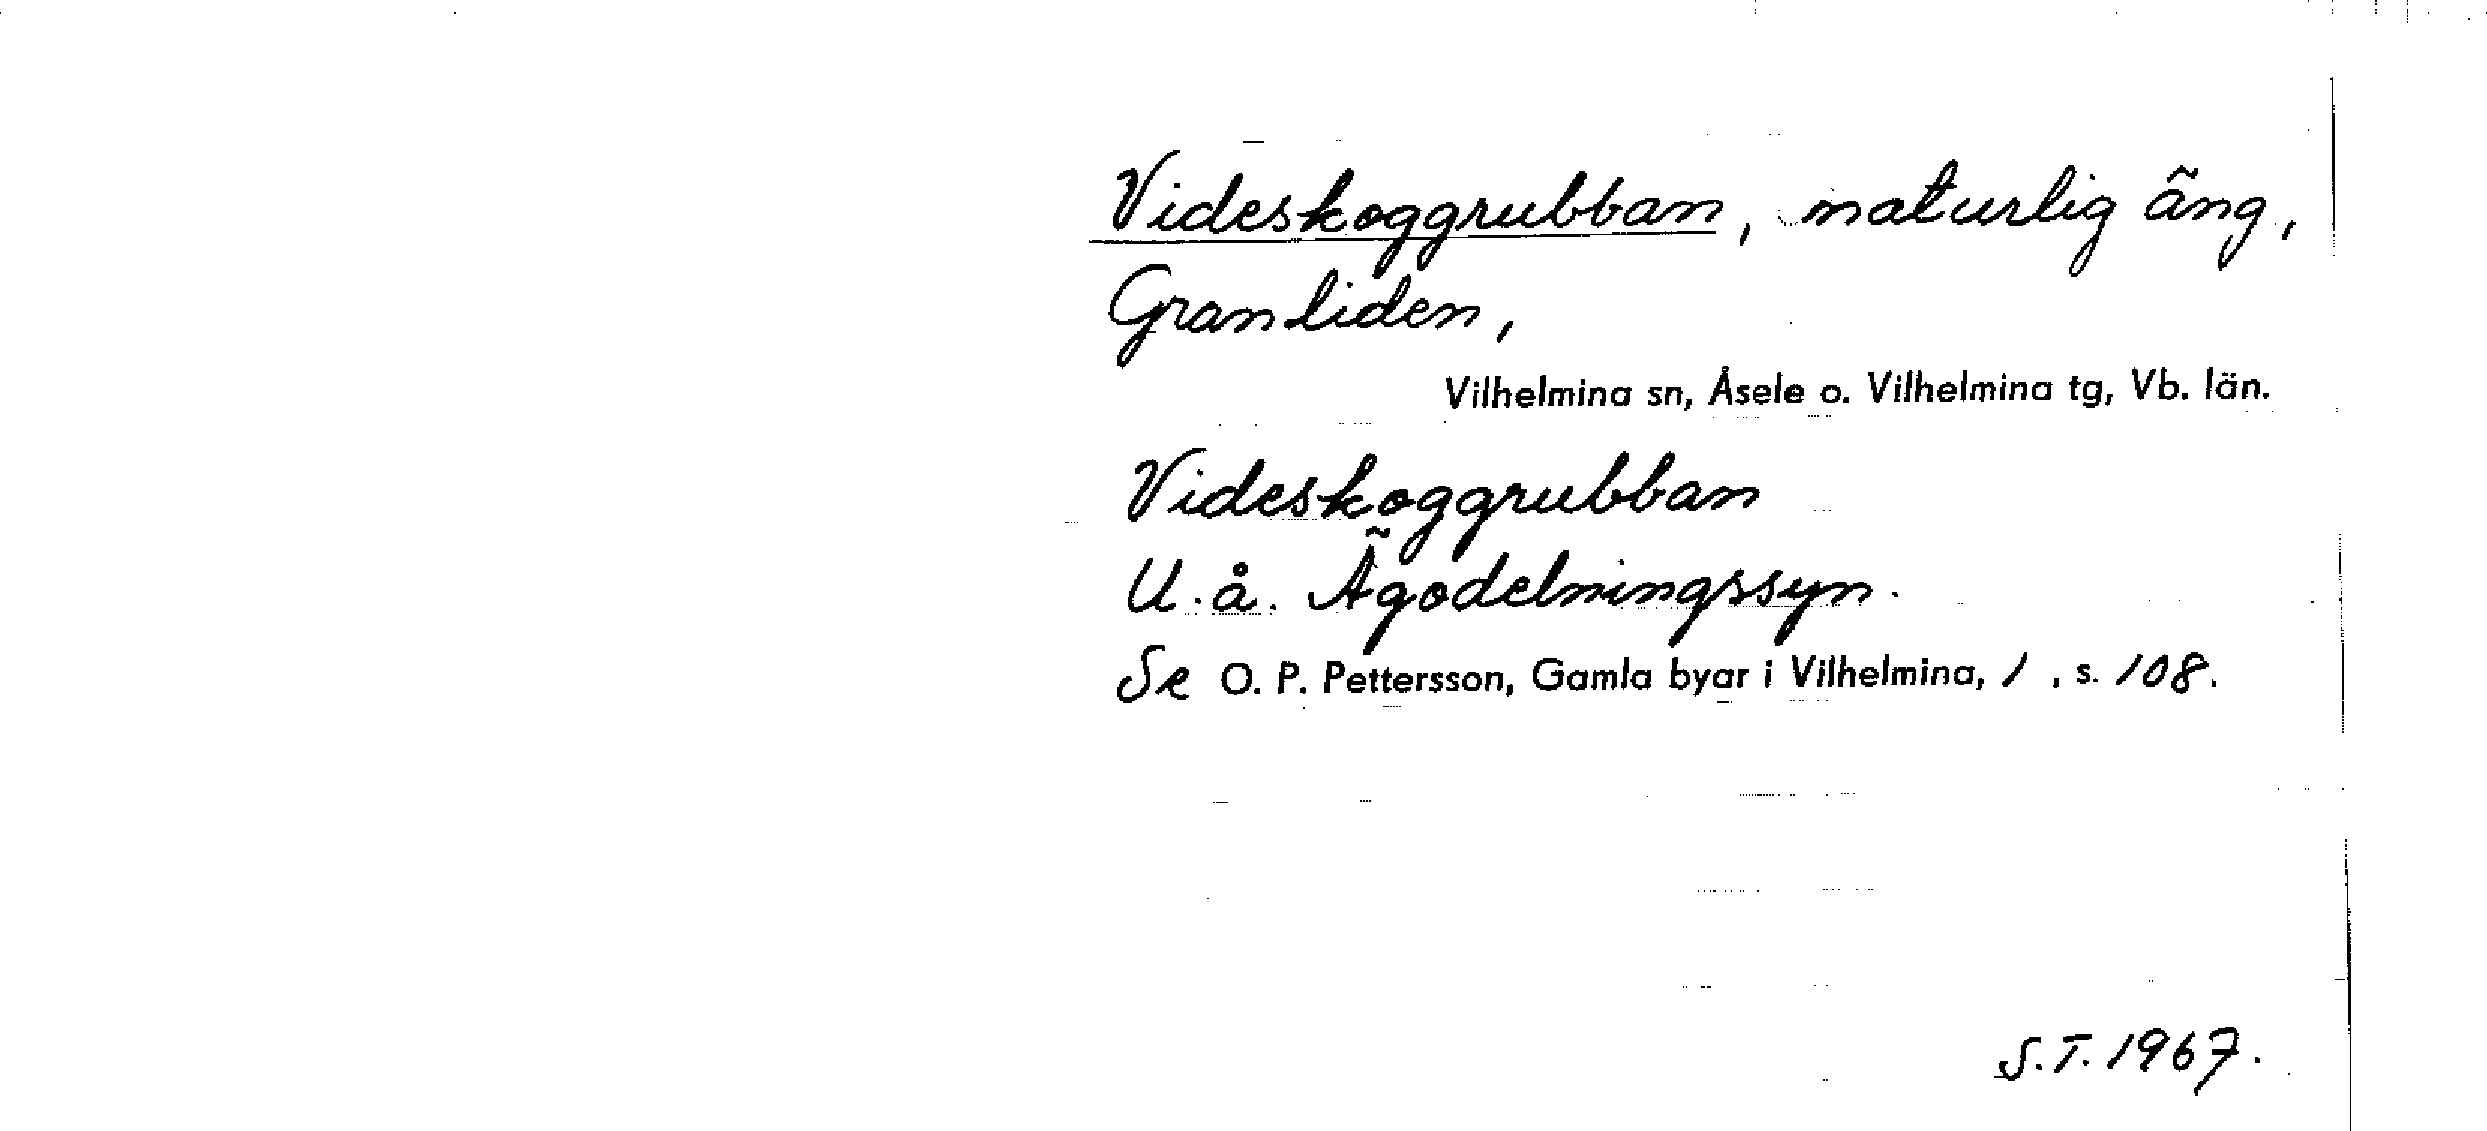 Videskoggrubban, naturlig äng,
Granliden,
Vilhelmina sn, Åsele o. Vilhelmina tg, Vb. län.
Videskoggrubban
U.å. Ägodelningssyn.
Se O. P. Pettersson, Gamla byar i Vilhelmina, 1, s. 108.
S.T. 1967.